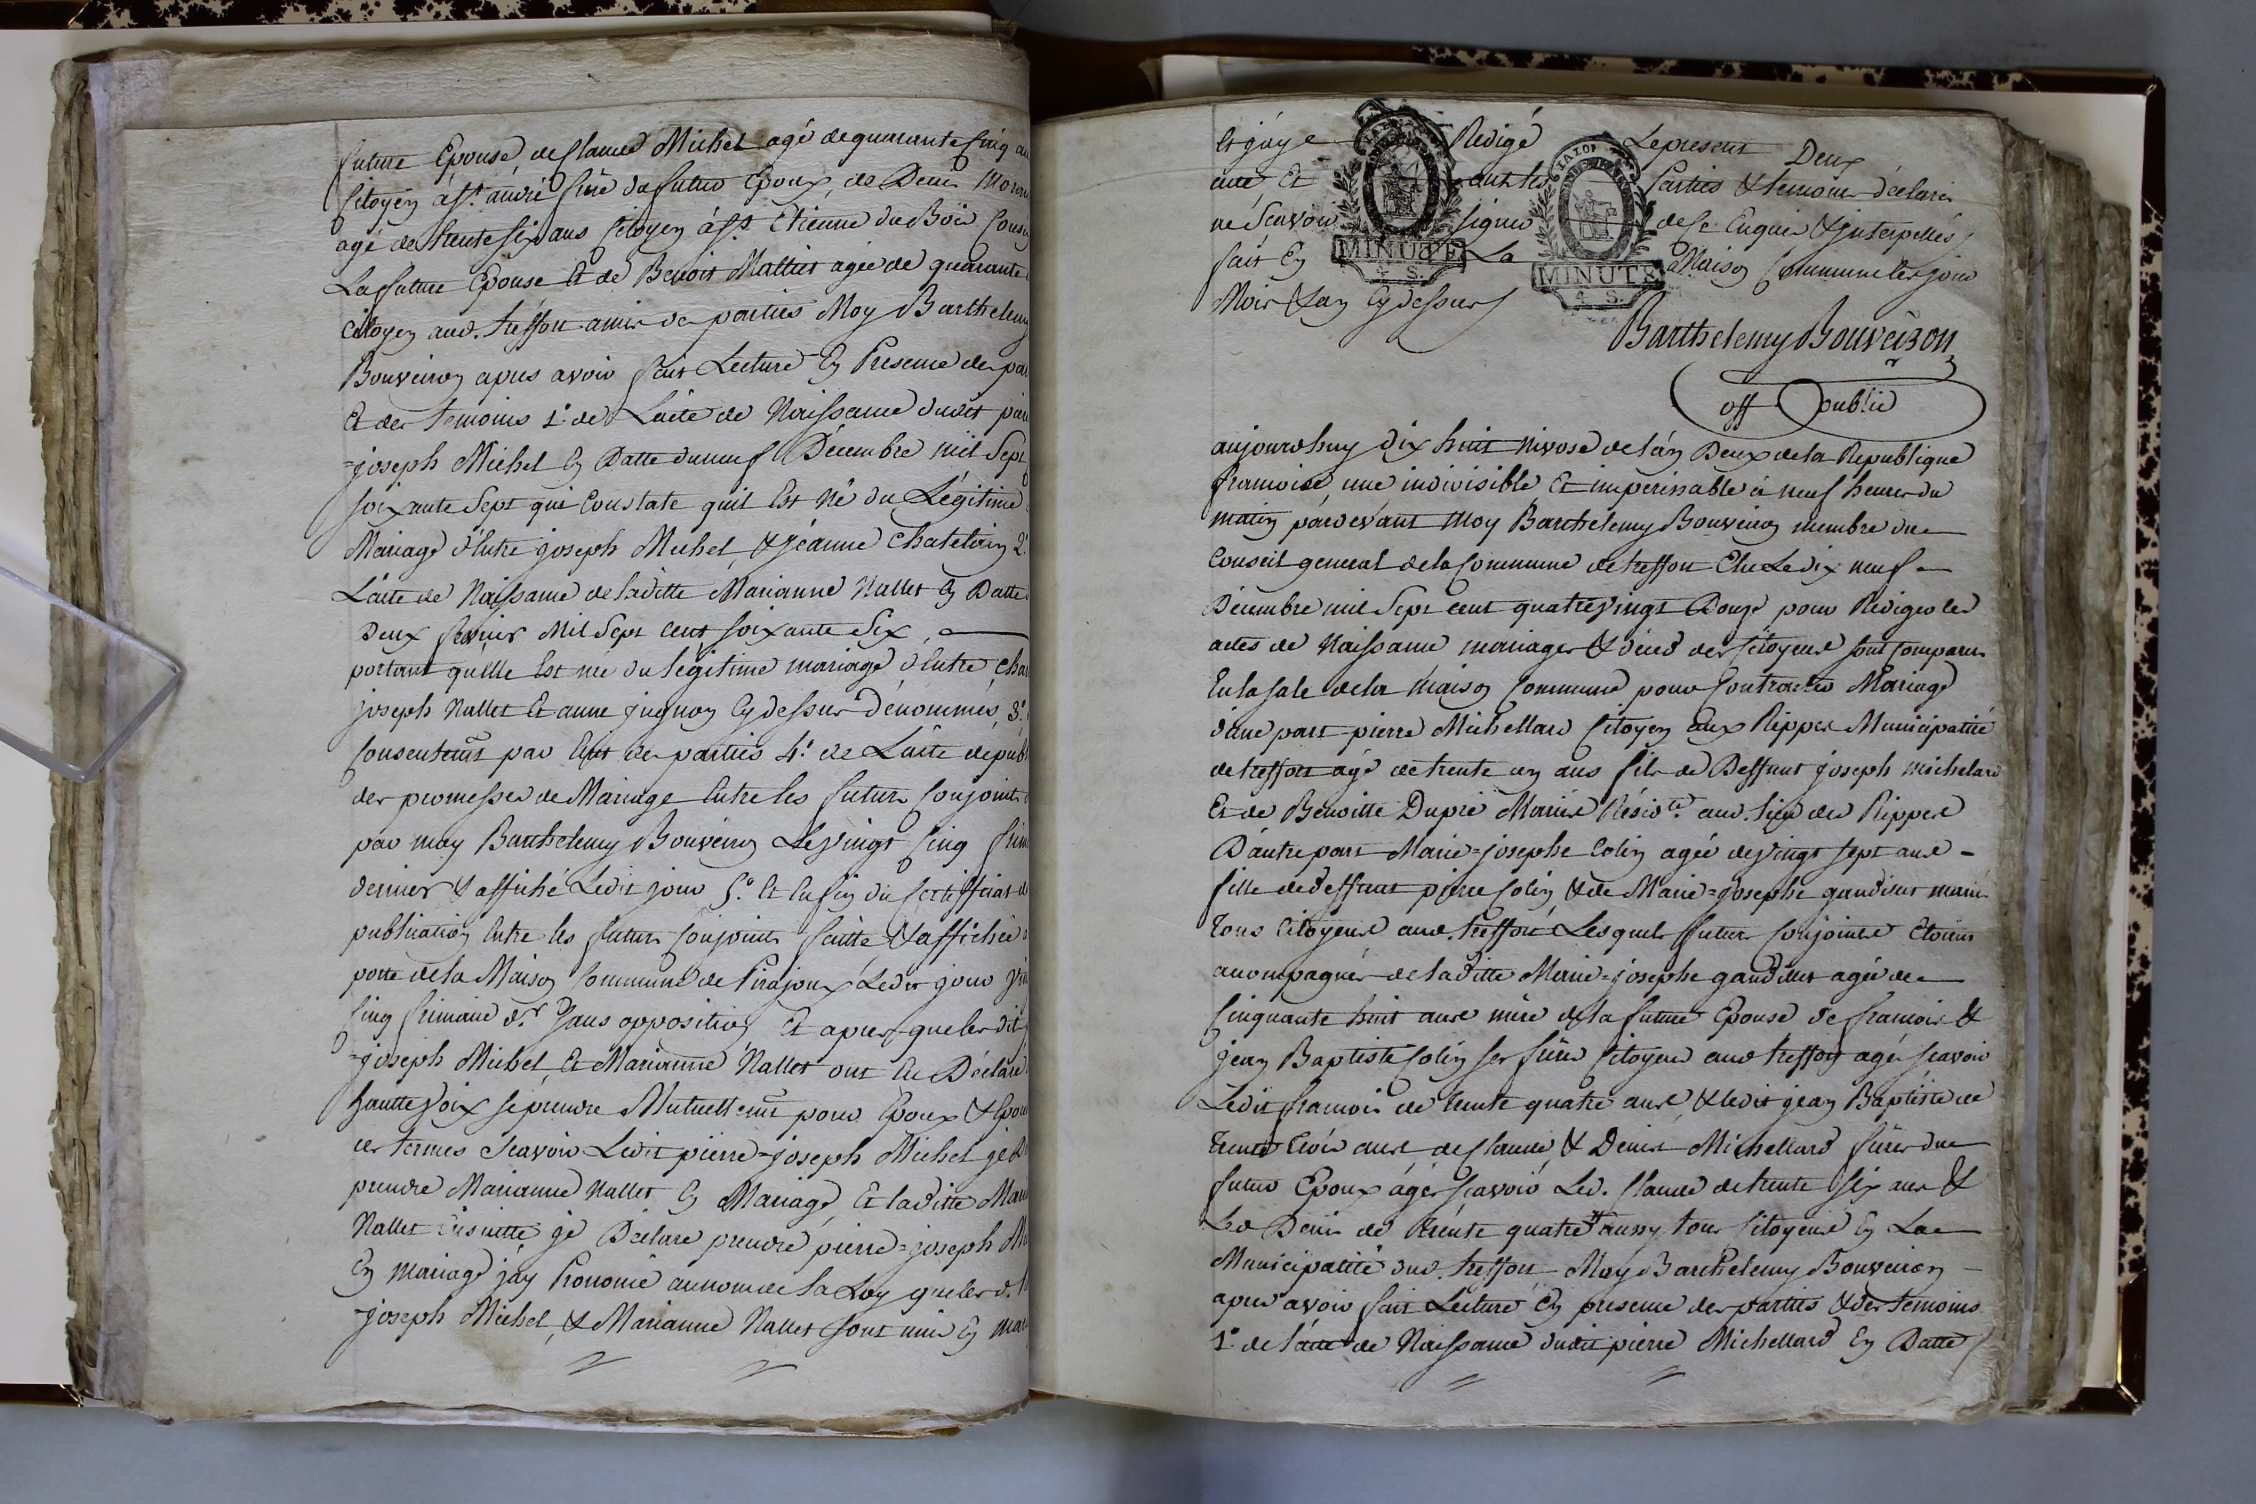 future Epouse de Claude Michel agé de quarante Cinq an
Citoyen a St. André frère du futur Epoux, de Denis Moren
agé de trente six ans Citoyen á St. Etienne du Bois Cousin
La future Epouse Et de Benoit Mallet agée de quarante
Citoyen aud. treffort amis de parties Moy Barthelemy
Bouveiron apres avoir fait Lecture En Presence des par
Et des temoins 1.° de Lacte de Naissance dudit pier
=joseph Michel En Datte du neuf Décembre mil Sept
soixante Sept qui Constate quil Est Né du Légitime
Mariage d'Entre joseph Michel, & Jeanne Chatelain 2.°
Lacte de Naissance de laditte Marianne Nallet En Datte
Deux fevrier Mil Sept Cent soixante Six,
portant qu'elle Est née du légitime mariage d'Entre Char
joseph Nallet Et anne jugnon Cy dessus dénommés, 3.°
Consentemt par Ecrit des parties 4.° de Lacte depubl
des promesses de Mariage Entre les futurs Conjoints
par moy Barthelemy Bouveiron Le vingt Cinq frim
dernier & affiché Ledit jour 5.° Et Enfin du Certifficat de
publication Entre les futurs Conjoints faitte & affichée
porte de la Maison Commune de Pirajoux Ledit jour vin
Cinq frimaire dr. sans opposition Et apres que lesdit
=joseph Michel, Et Marianne Nallet ont Eu Déclaré
hautte voix se prendre Mutuellemt pour Epoux & Epou
ces termes Scavoir Ledit pierre=joseph Michel je D
prendre Marianne Nallet En Mariage, Et laditte Mari
Nallet Ensuitte je Déclare prendre pierre=joseph Mi
En mariage jay Prononcé au nom de la Loy que lesd.
=joseph Michel, & Marianne Nallet sont unis En mar
Et jáy Redigé Le present
acte Et Deux
ont les Parties & temoins déclaré
ne Scavoir signer de Ce Enquis & jnterpellés
fait En La Maison Commune les jour
Mois & an Cy dessus
MINUTE
4 S.
MINUTE
4 S.
Barthelemy Bouveiron
off public
aujourdhuy dix huit Nivose de l'án Deux de la Republique
francoise, une indivisible, Et imperissable à neuf heures du
matin pardevant Moy Barthélemy Bouveiron membre du
Conseil general de la Commune de treffort Elu Le dix neuf
Décembre mil Sept cent quatre vingt Douze pour Rediger les
actes de Naissance mariages & décés des Citoyens sont Comparus
En la sale de la Maison Commune pour Contracter Mariage
d'une part pierre Michellard Citoyen aux Rippes Municipalité
de treffort agé de trente un ans fils de Deffunt joseph michelard
Et de Benoitte Dupré Mariés Résidts. aud. lieu des Rippes
D'autre part Marie=josephe Colin agée de vingt sept ans
fille de deffunt pierre Colin & de Marie=josephe gaudillet mariés
Tous Citoyens aud. treffort Lesquels futurs Conjoints Etoient
accompagnés de laditte Marie=josephe gaudillet agée de
Cinquante huit ans mère de la future Epouse de francois &
jean Baptiste Colin ses frères Citoyens aud treffort agés scavoir
Ledit francois de trente quatre ans, & ledit jean Baptiste de
trente trois ans, de Claude & Denis Michellard frères du
futur Epoux agés scavoir Led. Claude de trente six ans &
Led Denis de trente quatre aussy tous Citoyens En La
Municipalité dud. treffort Moy Barthelemy Bouveiron
apres avoir fait Lecture En presence des parties & des temoins
1.° de l'acte de Naissance dudit pierre Michellard En Datte